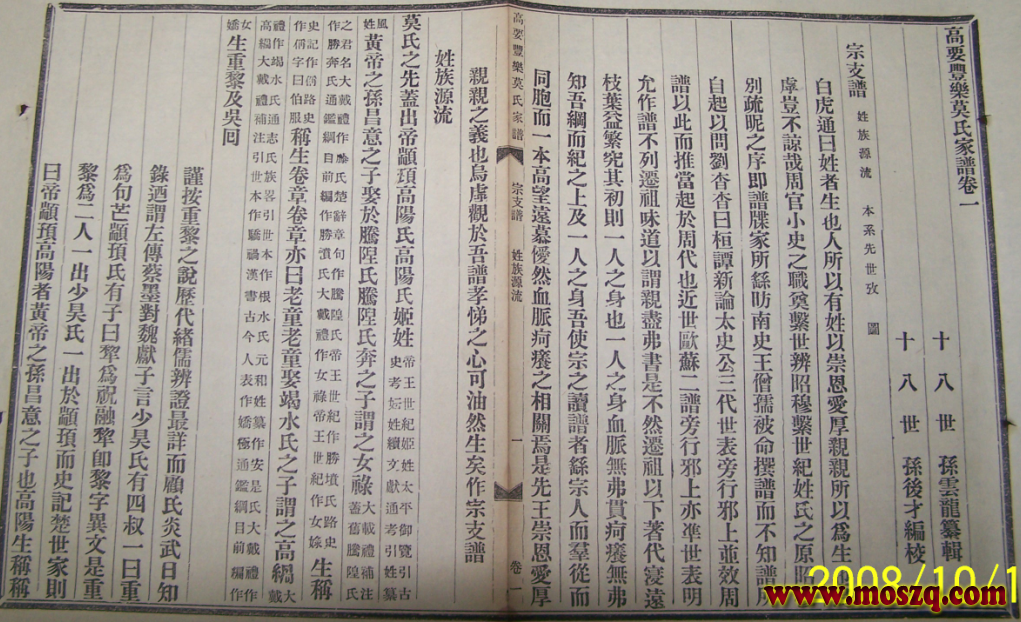 高要豐樂莫氏家譜卷一
十八世孫雲龍纂輯
十八世孫後才編校
宗支譜 姓族源流 本系先世攷 圖
白虎通曰姓者生也人所以有姓以崇恩愛厚親親所以為生
虖豈不諒哉周官小史之職奠繫世辨昭穆繫世紀姓氏之原昭
別疏昵之序即譜牒家所繇昉南史王僧孺被命撰譜而不知譜所
自起以問劉杳杳曰桓譚新論太史公三代世表旁行邪上並效周
譜以此而推當起於周代也近世歐蘇二譜旁行邪上亦準世表明
允作譜不列遷祖味道以謂親盡弗書是不然遷祖以下著代寖遠
枝葉益繁究其初則一人之身也一人之身血脈無弗貫疴癢無弗
知吾綱而紀之上及一人之身吾使宗之讀譜者繇宗人而羣從而
同胞而一本高望遠慕僾然血脈疴癢之相關焉是先王崇恩愛厚
高要豐樂莫氏家譜 宗支譜 姓族源流 一 卷一
親親之義也烏虖觀於吾譜孝悌之心可油然生矣作宗支譜
姓族源流
莫氏之先蓋出帝顓頊高陽氏高陽氏姬姓 帝王世紀姬姓太平御覽引古史考妘姓續文獻通考引姓纂
風姓 黃帝之孫昌意之子娶於騰隍氏騰隍氏奔之子謂之女祿 大戴禮補注蓋舊騰隍氏
之君名大戴禮作滕氏楚辭章句作騰隍氏帝王世紀作勝墳氏路史作勝奔氏通鑑綱目前編作勝濆氏大戴禮作女祿帝王世紀作女娽 生稱
史記作偁路史作偁字曰伯服 稱生卷章卷章亦曰老童老童娶竭水氏之子謂之高緺 大戴
禮作竭水氏通志氏族畧引世本作根水氏元和姓纂作安是氏大戴禮作高緺大戴禮補注引世本作驕驕漢書古今人表作嬌極通鑑綱目前編作
女嬌 生重黎及吳囘
謹按重黎之說歷代緒儒辨證最詳而顧氏炎武日知
錄迺謂左傳蔡墨對魏獻子言少昊氏有四叔一曰重
為句芒顓頊氏有子曰犂為祝融犂卽黎字異文是重
黎為二人一出少昊氏一出於顓頊而史記楚世家則
曰帝顓頊高陽者黃帝之孫昌意之子也高陽生稱稱
2008/10/1
www.moszq.com